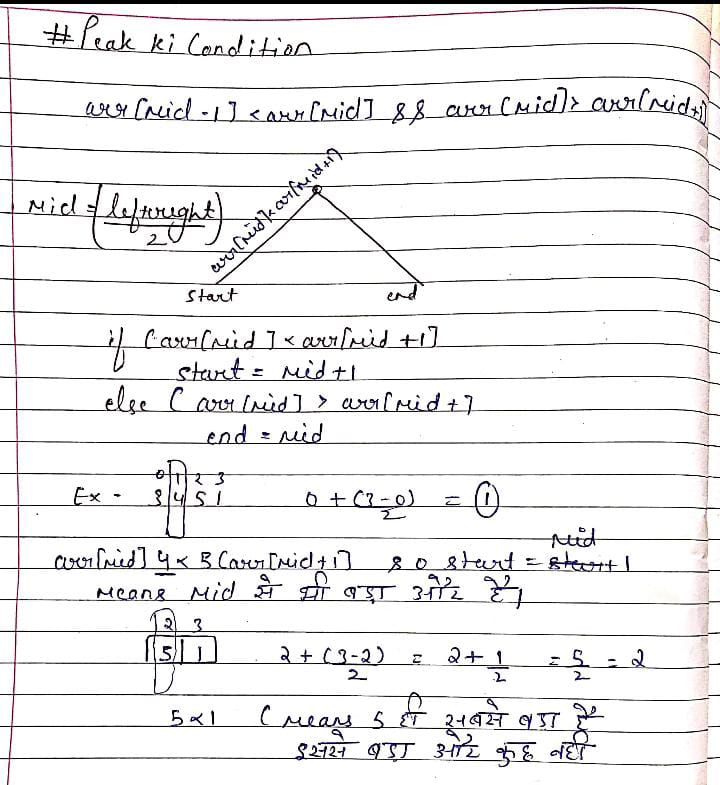 # Peak ki Condition
arr[mid-1] < arr[mid] && arr[mid] > arr[mid+1]
arr[mid] < arr[mid+1]
mid = (left+right)
2
start end
if (arr[mid] < arr[mid+1]
start = mid+1
else ( arr[mid] > arr[mid+]
end = mid
0 1 2 3
Ex - 3 4 5 1 0 + (3-0) = 1
2
mid
arr[mid] 4 < 5 (arr[mid+1] so start = start+1
means mid से भी बड़ा और है।
2 3
5 1 2 + (3-2) = 2 + 1 = 5 = 2
2 2 2
5 < 1 (means 5 ही सबसे बड़ा है
इससे बड़ा और कुछ नहीं